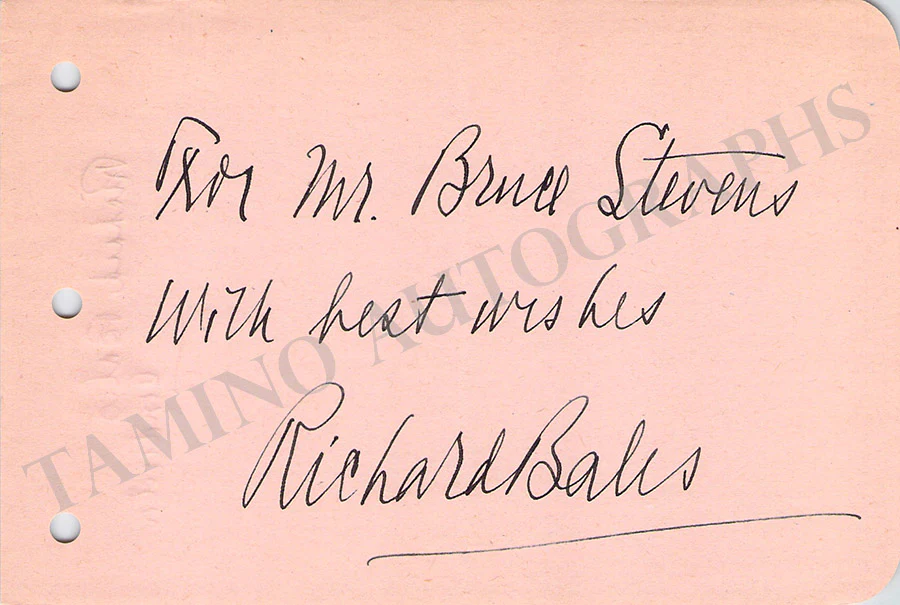 For Mr. Bruce Stevens
With best wishes
Richard Bales
TAMINO AUTOGRAPHS